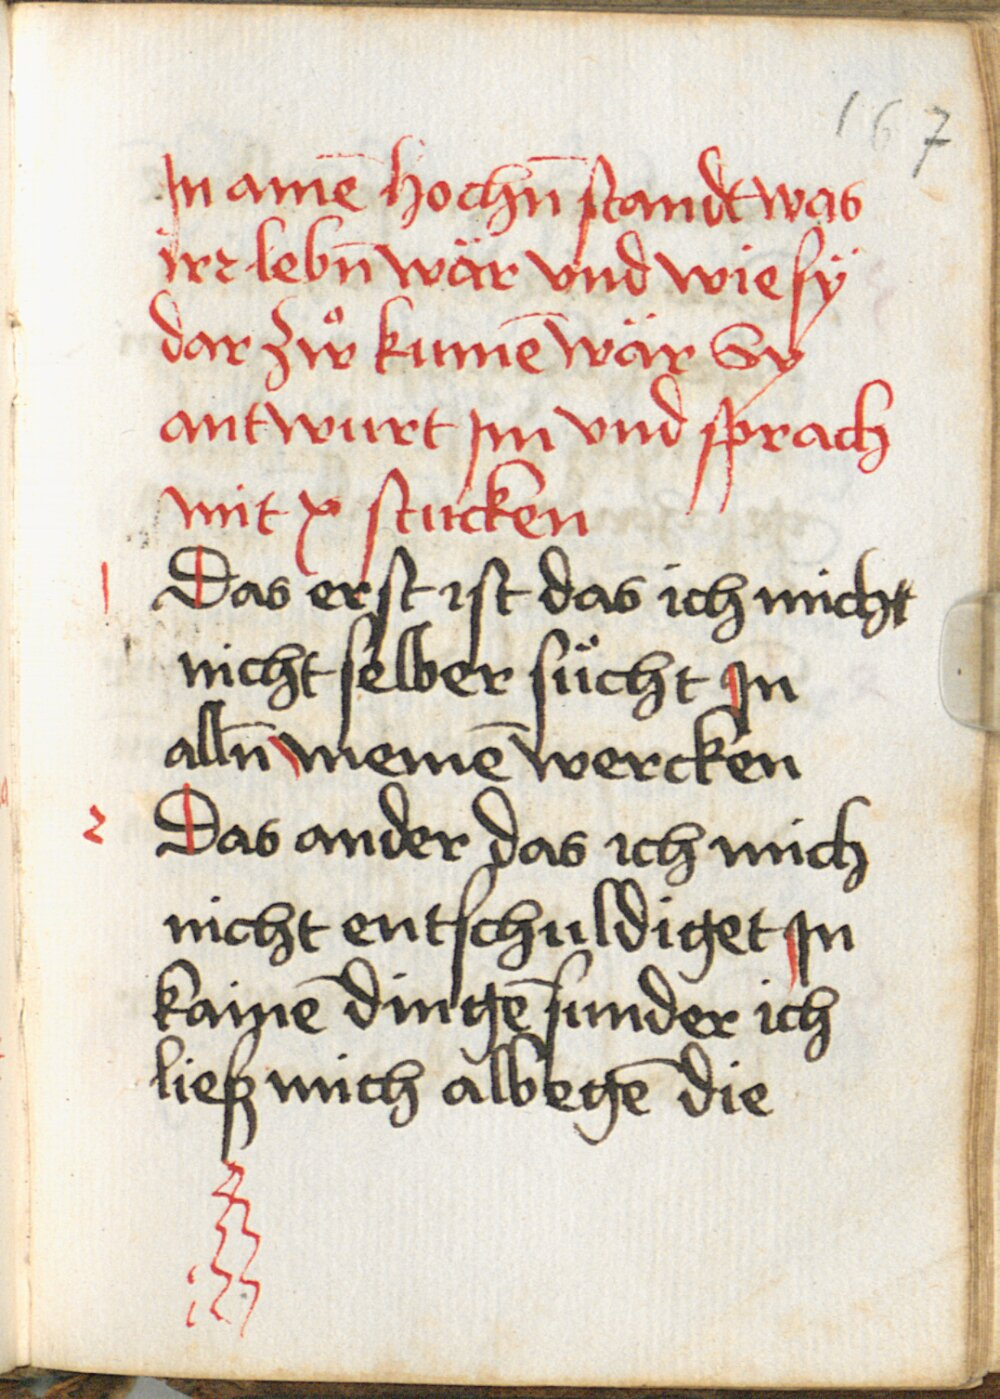 167
In aine̅ hochn̅ standt was
irr lebn̅ wär vnd wie sÿ
dar zů kume̅ wär Sy
antwurt Im vnd sprach
mit x stucken
1 Das erst ist das ich micht
nicht selber sücht In
alln̅ meine̅ wercken
2 Das ander das ich mich
nicht entschuldiget In
kaine̅ dinge̅ sunder ich
ließ mich albege̅ die